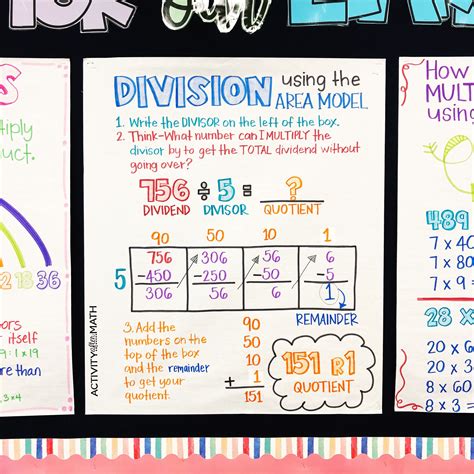 DIVISION using the
AREA MODEL
1. Write the DIVISOR on the left of the box.
2. Think-What number can I MULTIPLY the
divisor by to get the TOTAL dividend without
going over?
756 ÷ 5 = ?
DIVIDEND DIVISOR QUOTIENT
90 50 10 1
5 756 306 56 6
-450 -250 -50 -5
306 56 6 1
REMAINDER
3. Add the
numbers on the
top of the box
and the remainder
to get your
quotient.
90
50
10
+ 1
151
151 R1
QUOTIENT
ACTIVITY after MATH
S
ply
uct.
12 18 36
ors
itself
9: 1 x 19
re than
, 3x4
How
MULT
using
489
7 x 40
7 x 80
7 x 9 =
28 x
20 x 6
20 x 3
8 x 60
8 x 3 =